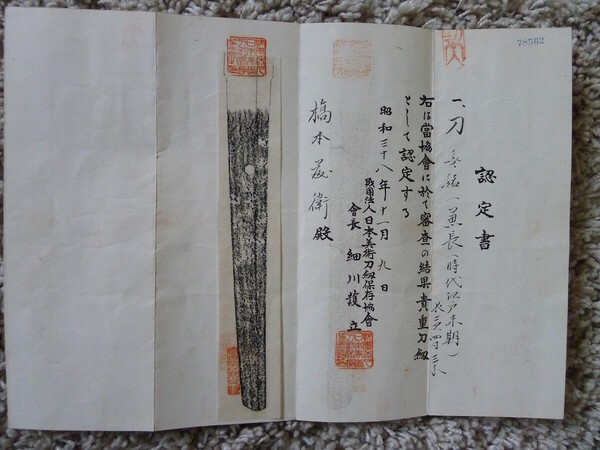 78562
認定書
一、刀 無銘(兼長)(時代江戸末期)
長二尺四寸三分
右は當協會に於て審査の結果貴重刀剱
として認定する
昭和三十八年十一月九日
財團法人日本美術刀剱保存協會
會長 細川護立
橋本 衛殿